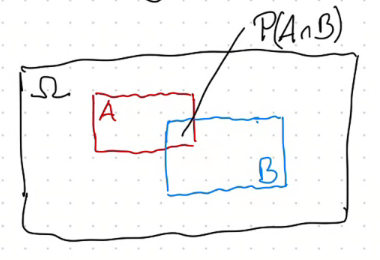 P(A∩B)
Ω
A
B